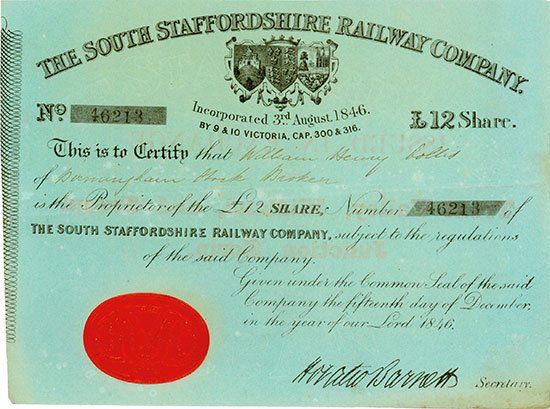 THE SOUTH STAFFORDSHIRE RAILWAY COMPANY.
Incorporated 3rd August, 1846.
BY 9 & 10 VICTORIA, CAP. 300 & 316.
No 46213
£12 Share.
This is to Certify that William Henry
of Birmingham Stock Broker
is the Proprietor of the £12 SHARE, Number 46213 of
THE SOUTH STAFFORDSHIRE RAILWAY COMPANY, subject to the regulations
of the said Company.
Given under the Common Seal of the said
Company the fifteenth day of December,
in the year of our Lord 1846.
Horatio Barnett Secretary.